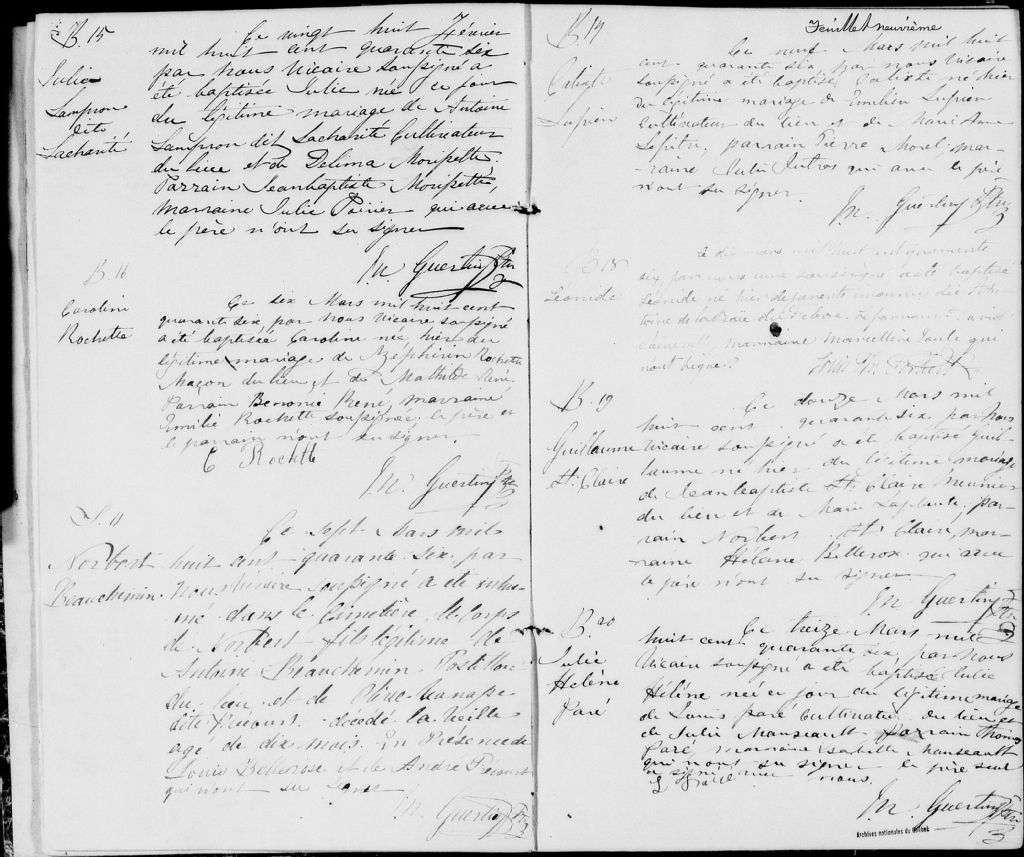 B. 15
Julie
Lampron
dite
Lacharité
Ce vingt huit Février
mil huit cent quarante six
par nous Vicaire soussigné a
été baptisée Julie née ce jour
du légitime mariage de Antoine
Lampron dit Lacharité Cultivateur
du lieu et de Delima
Parrain Jeanbaptiste
marraine Julie Poirier qui avec
le père n'ont su signer
M. Guertin Ptre
B. 16
Caroline
Rochette
Ce six Mars mil huit cent
quarante six, par nous Vicaire soussigné
a été baptisée Caroline née hier du
légitime mariage de Azéphirin Rochette
Maçon du lieu et de Mathilde René,
Parrain Bénonie René, marraine
Emilie Rochette soussignée, le père et
le parrain n'ont su signer.
E Rochette
M. Guertin Ptre
S. 11
Norbert
Beauchemin
Ce sept Mars mil
huit cent quarante six, par
nous Vicaire soussigné a été inhu-
mé dans le Cimetière le corps
de Norbert fils légitime de
Antoine Beauchemin Postillon
du lieu et de Olive
dite décédé la veille
agé de dix mois. En Présence de
Louis Bellerose et de André
qui n'ont su signer
M. Guertin Ptre
Feuillet neuvième
B. 17
Calixte
Ce neuf Mars mil huit
cent quarante six par nous Vicaire
soussigné a été baptisé Calixte né hier
du légitime mariage de Emilien
Cultivateur du lieu et de Marie Anne
parrain Pierre Morel, mar-
raine Julie qui avec le père
n'ont su signer.
M. Guertin Ptre
B. 18
Léonide
Le dix mars mil huit cent quarante
six par nous soussigné a été baptisé
Léonide né hier de parents inconnus
Le parrain David
marraine Marcelline qui
n'ont signé.
B. 19
Guillaume
St. Claire
Ce douze Mars mil
huit cent quarante six, par nous
Vicaire soussigné a été baptisé Guil-
laume né hier du légitime mariage
de Jeanbaptiste St. Claire Meunier
du lieu et de Marie Laplante, par-
rain Norbert St. Claire, mar-
raine Hélène Bellerose qui avec
le père n'ont su signer
M. Guertin Ptre
B. 20
Julie
Hélène
Paré
Ce treize Mars mil
huit cent quarante six, par nous
Vicaire soussigné a été baptisé Julie
Hélène née ce jour du légitime mariage
de Louis paré Cultivateur du lieu et
de Julie Manseault Parrain Thomas
Paré, marraine Isabelle Manseault
qui n'ont su signer le père seul
a signé avec nous.
M. Guertin Ptre
Archives nationales du Québec